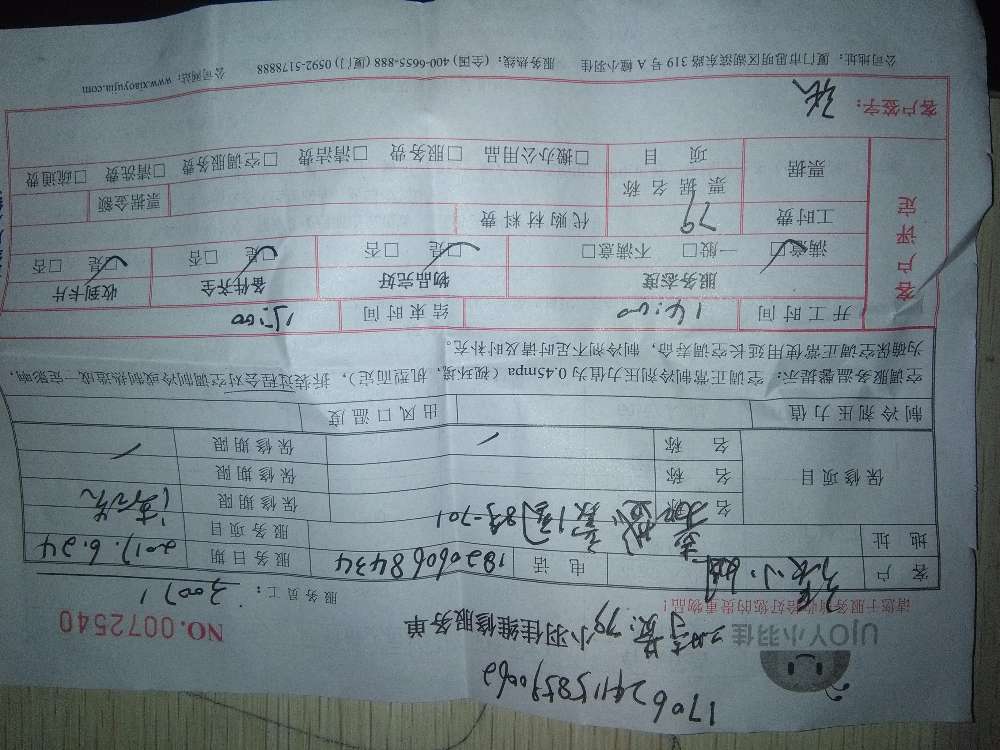 170624115859062
UJOY小羽佳
小羽佳维修服务单
NO.0072540
工时费:79
请您于服务前收拾好您的贵重物品!
服务员工: 30071
客 户 张小姐 电 话 18206068434 服务日期 2017.6.24
地 址 8号-701 服务项目
保修项目 名 称 保修期限 清洗
名 称 保修期限
名 称 / 保修期限 /
制冷剂压力值 出风口温度
空调服务温馨提示: 空调正常制冷剂压力值为 0.45mpa(视环境,机型而定),拆装过程会对空调制冷或制热造成一定影响,
为确保空调正常使用延长空调寿命,制冷剂不足时请及时补充。
客户评定
开工时间 14:00 结束时间 15:00
服务态度 物品完好 备件齐全 收到卡片
满意□ 一般□ 不满意□ □是 □否 □是 □否 □是 □否
工时费 79 代购材料费
票据 票据名称 票据金额
项 目 □搬办公用品 □服务费 □清洁费 □空调服务费 □清洗费 □疏通费
客户签字: 张
公司地址: 厦门市思明区湖滨东路 319 号 A 幢小羽佳 服务热线:(全国) 400-6655-888 (厦门) 0592-5178888 公司网站: www.xiaoyujia.com